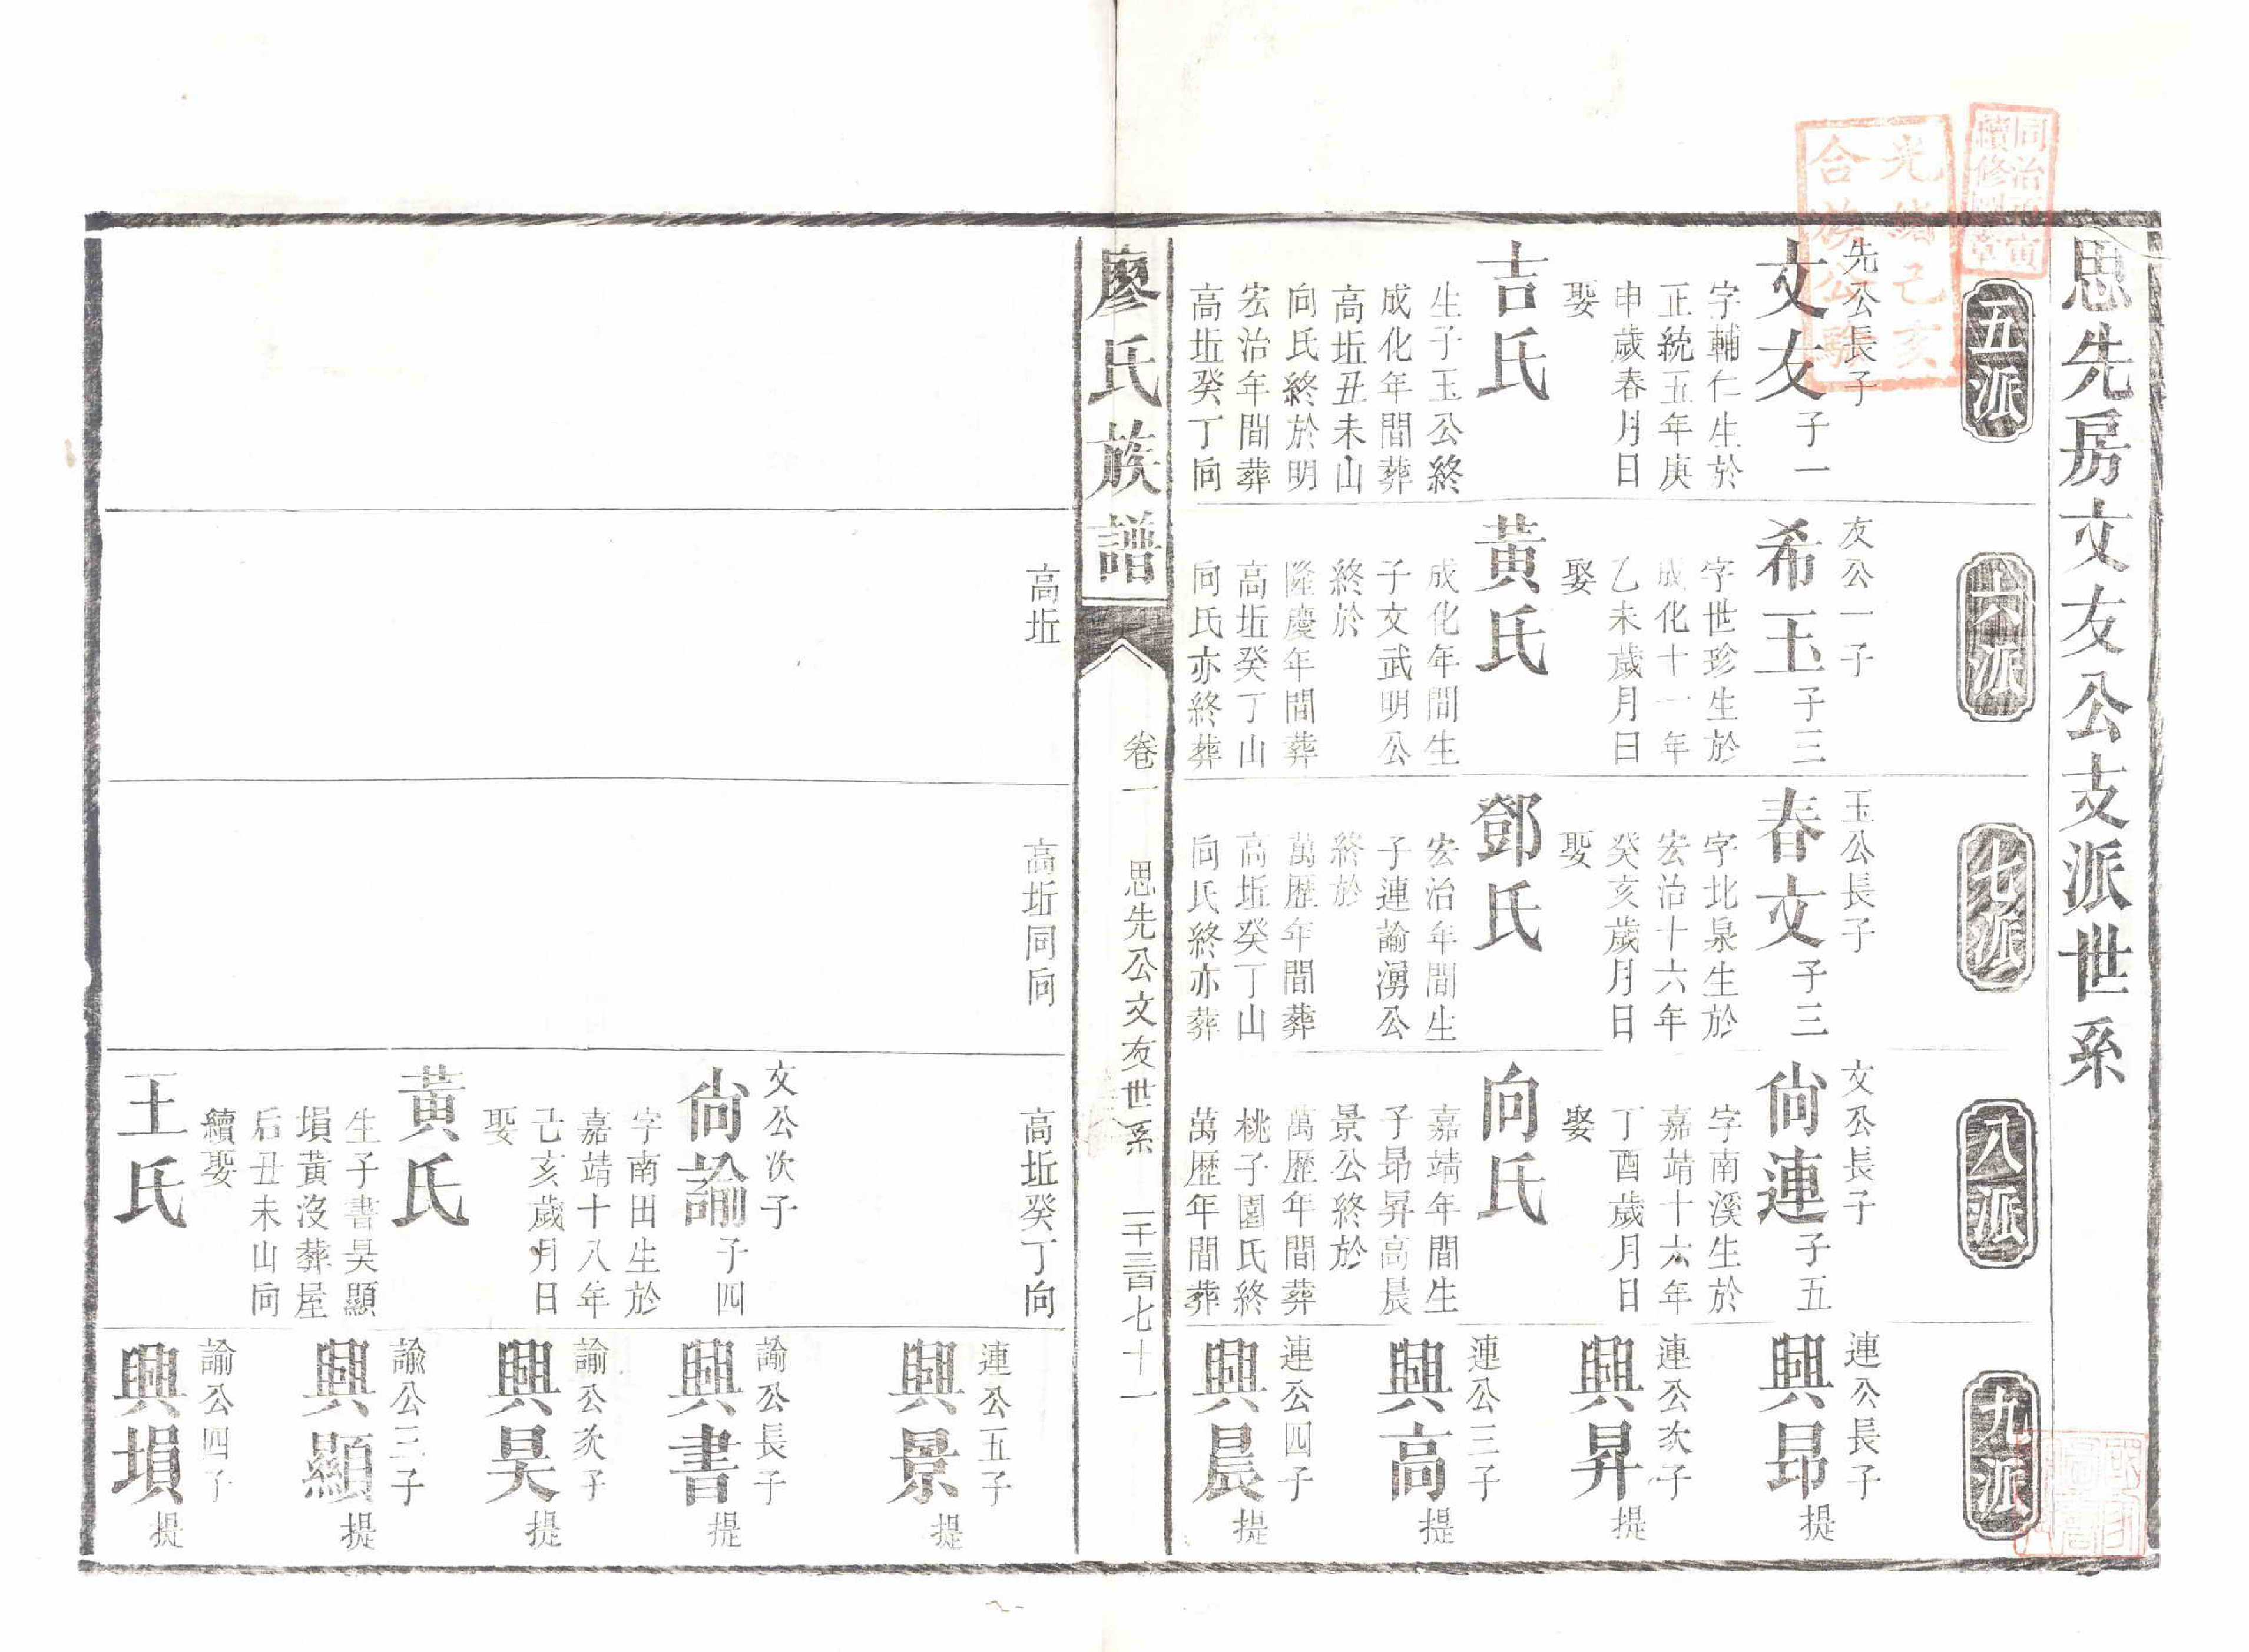 思先房文友公支派世系
五派
先公長子
文友子一
字輔仁生於
正統五年庚
申歲春月日
娶
吉氏
生子玉公終
成化年間葬
高坵丑未山
向氏終於明
宏治年間葬
高坵癸丁向
六派
友公一子
希玉子三
字世珍生於
成化十一年
乙未歲月日
娶
黃氏
成化年間生
子文武明公
終於
隆慶年間葬
高坵癸丁山
向氏亦終葬
高坵
七派
玉公長子
春文子三
字北泉生於
宏治十六年
癸亥歲月日
娶
鄧氏
宏治年間生
子連論湧公
終於
萬歷年間葬
高坵癸丁山
向氏終亦葬
高坵同向
八派
文公長子
尙連子五
字南溪生於
嘉靖十六年
丁酉歲月日
娶
向氏
嘉靖年間生
子昻昇高晨
景公終於
萬歷年間葬
桃子園氏終
萬歷年間葬
高坵癸丁向
文公次子
尙論子四
字南田生於
嘉靖十八年
己亥歲月日
娶
黃氏
生子書昊顯
塤黃沒葬屋
后丑未山向
續娶
王氏
九派
連公長子
興昻提
連公次子
興昇提
連公三子
興高提
連公四子
興晨提
連公五子
興景提
論公長子
興書提
論公次子
興昊提
論公三子
興顯提
論公四子
興塤提
廖氏族譜
卷一
思先公文友世系
一千三百七十一
同治丙寅
續修圖章
光緒己亥
合族公驗